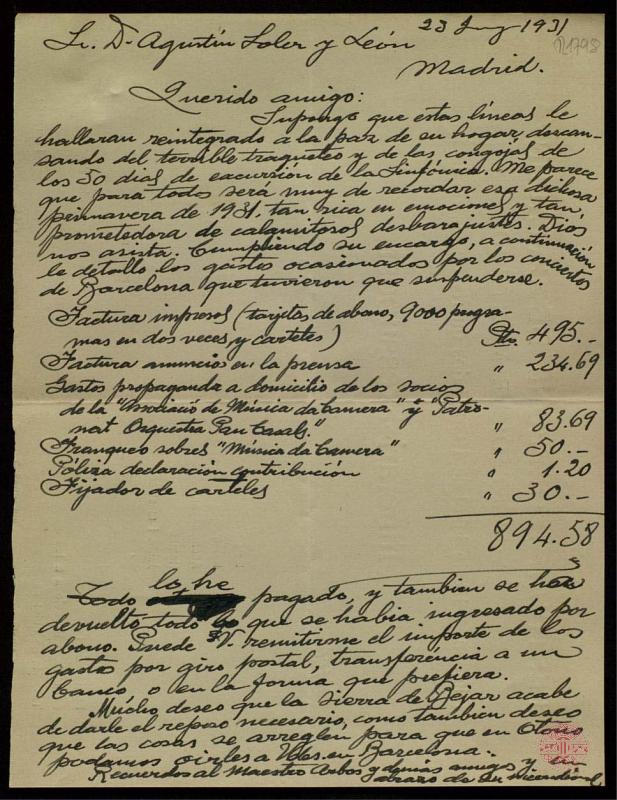 23 Jung 1931
R.1798
Sr. Dn. Agustín Soler y León
Madrid.
Querido amigo:
Supongo que estas líneas le
hallaran reintegrado a la paz de su hogar, descan-
sando del terrible traqueteo y de las congojas de
los 50 dias de excursión de la Sinfónica. Me parece
que para todos será muy de recordar esa dichosa
primavera de 1931, tan rica en emociones y tan
prometedora de calamitosos desbarajustes. Dios
nos asista. Cumpliendo su encargo, a continuación
le detallo los gastos ocasionados por los conciertos
de Barcelona que tuvieron que suspenderse.
Factura impresos (tarjetas de abono, 9000 progra-
mas en dos veces y carteles) Pts. 495.-
Factura anuncios en la prensa " 234.69
Gastos propaganda a domicilio de los socios
de la "Associació de Música da Camera" y "Patro-
nat Orquestra Pau Casals." " 83.69
Franqueo sobres "Música da Camera" " 50.-
Póliza declaración contribución " 1.20
Fijador de carteles " 30.-
894.58
Todo lo he pagado, y tambien se ha
devuelto todo lo que se habia ingresado por
abono. Puede V. remitirme el importe de los
gastos por giro postal, transferéncia a un
Banco o en la forma que prefiera.
Mucho deseo que la Sierra de Béjar acabe
de darle el reposo necesario, como tambien deseo
que las cosas se arreglen para que en Otoño
podamos oirles a Vdes. en Barcelona.
Recuerdos al Maestro Arbos y demás amigos y un
abrazo de su incondicional